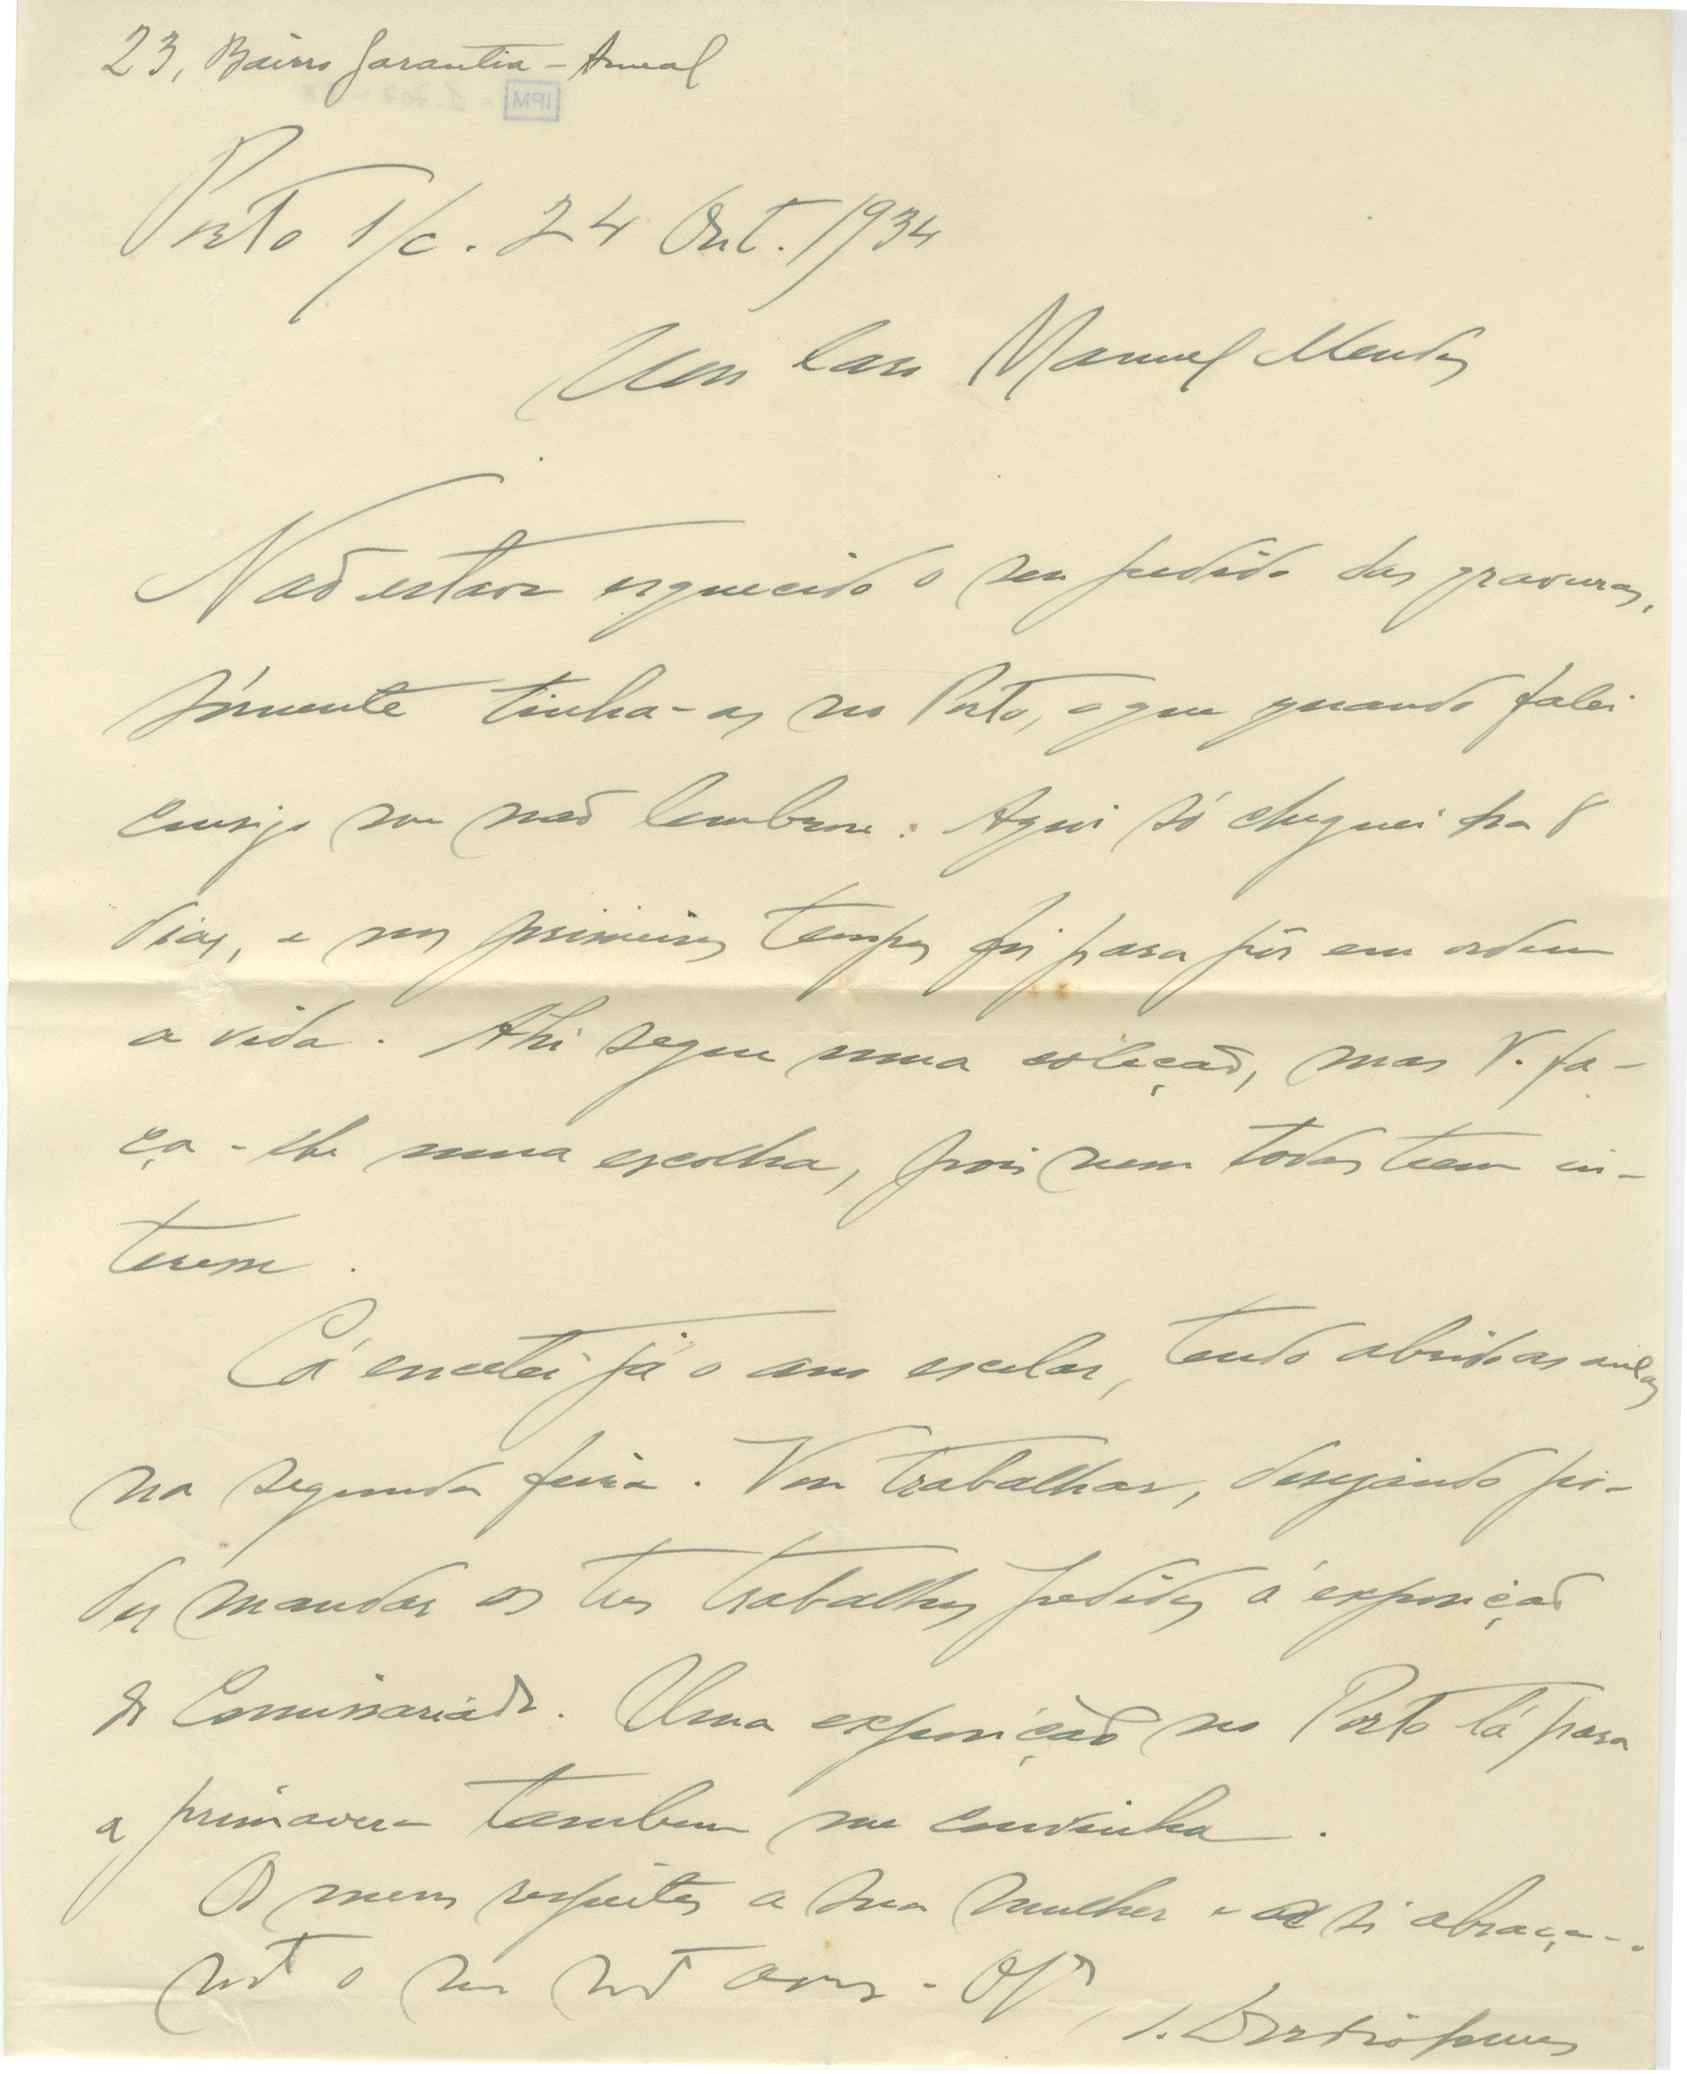 23, Bairro Garantia - Ameal
IPM
Porto T/c. 24 Out. 1934
Meu Caro Manuel Mendes
Naõ estava esquecido o seu pedido das gravuras,
sómente tinha-as no Porto, o que quando falei
consigo me naõ lembrou. Aqui só cheguei ha 8
dias, e nos primeiros tempos foi para pôr em ordem
a vida. Ahi segue uma coleçaõ, mas V. fa-
ça-lhe uma escolha, pois nem todas teem in-
teresse.
Cá encetei já o ano escolar, tendo abrido as aulas
na segunda feira. Vou trabalhar, desejando po-
der mandar os tres trabalhos pedidos á exposiçaõ
do Comissariado. Uma exposiçaõ no Porto lá para
a primavera tambem me convinha.
Os meus respeitos a sua mulher e a si abraça-o
mt o seu mt am.